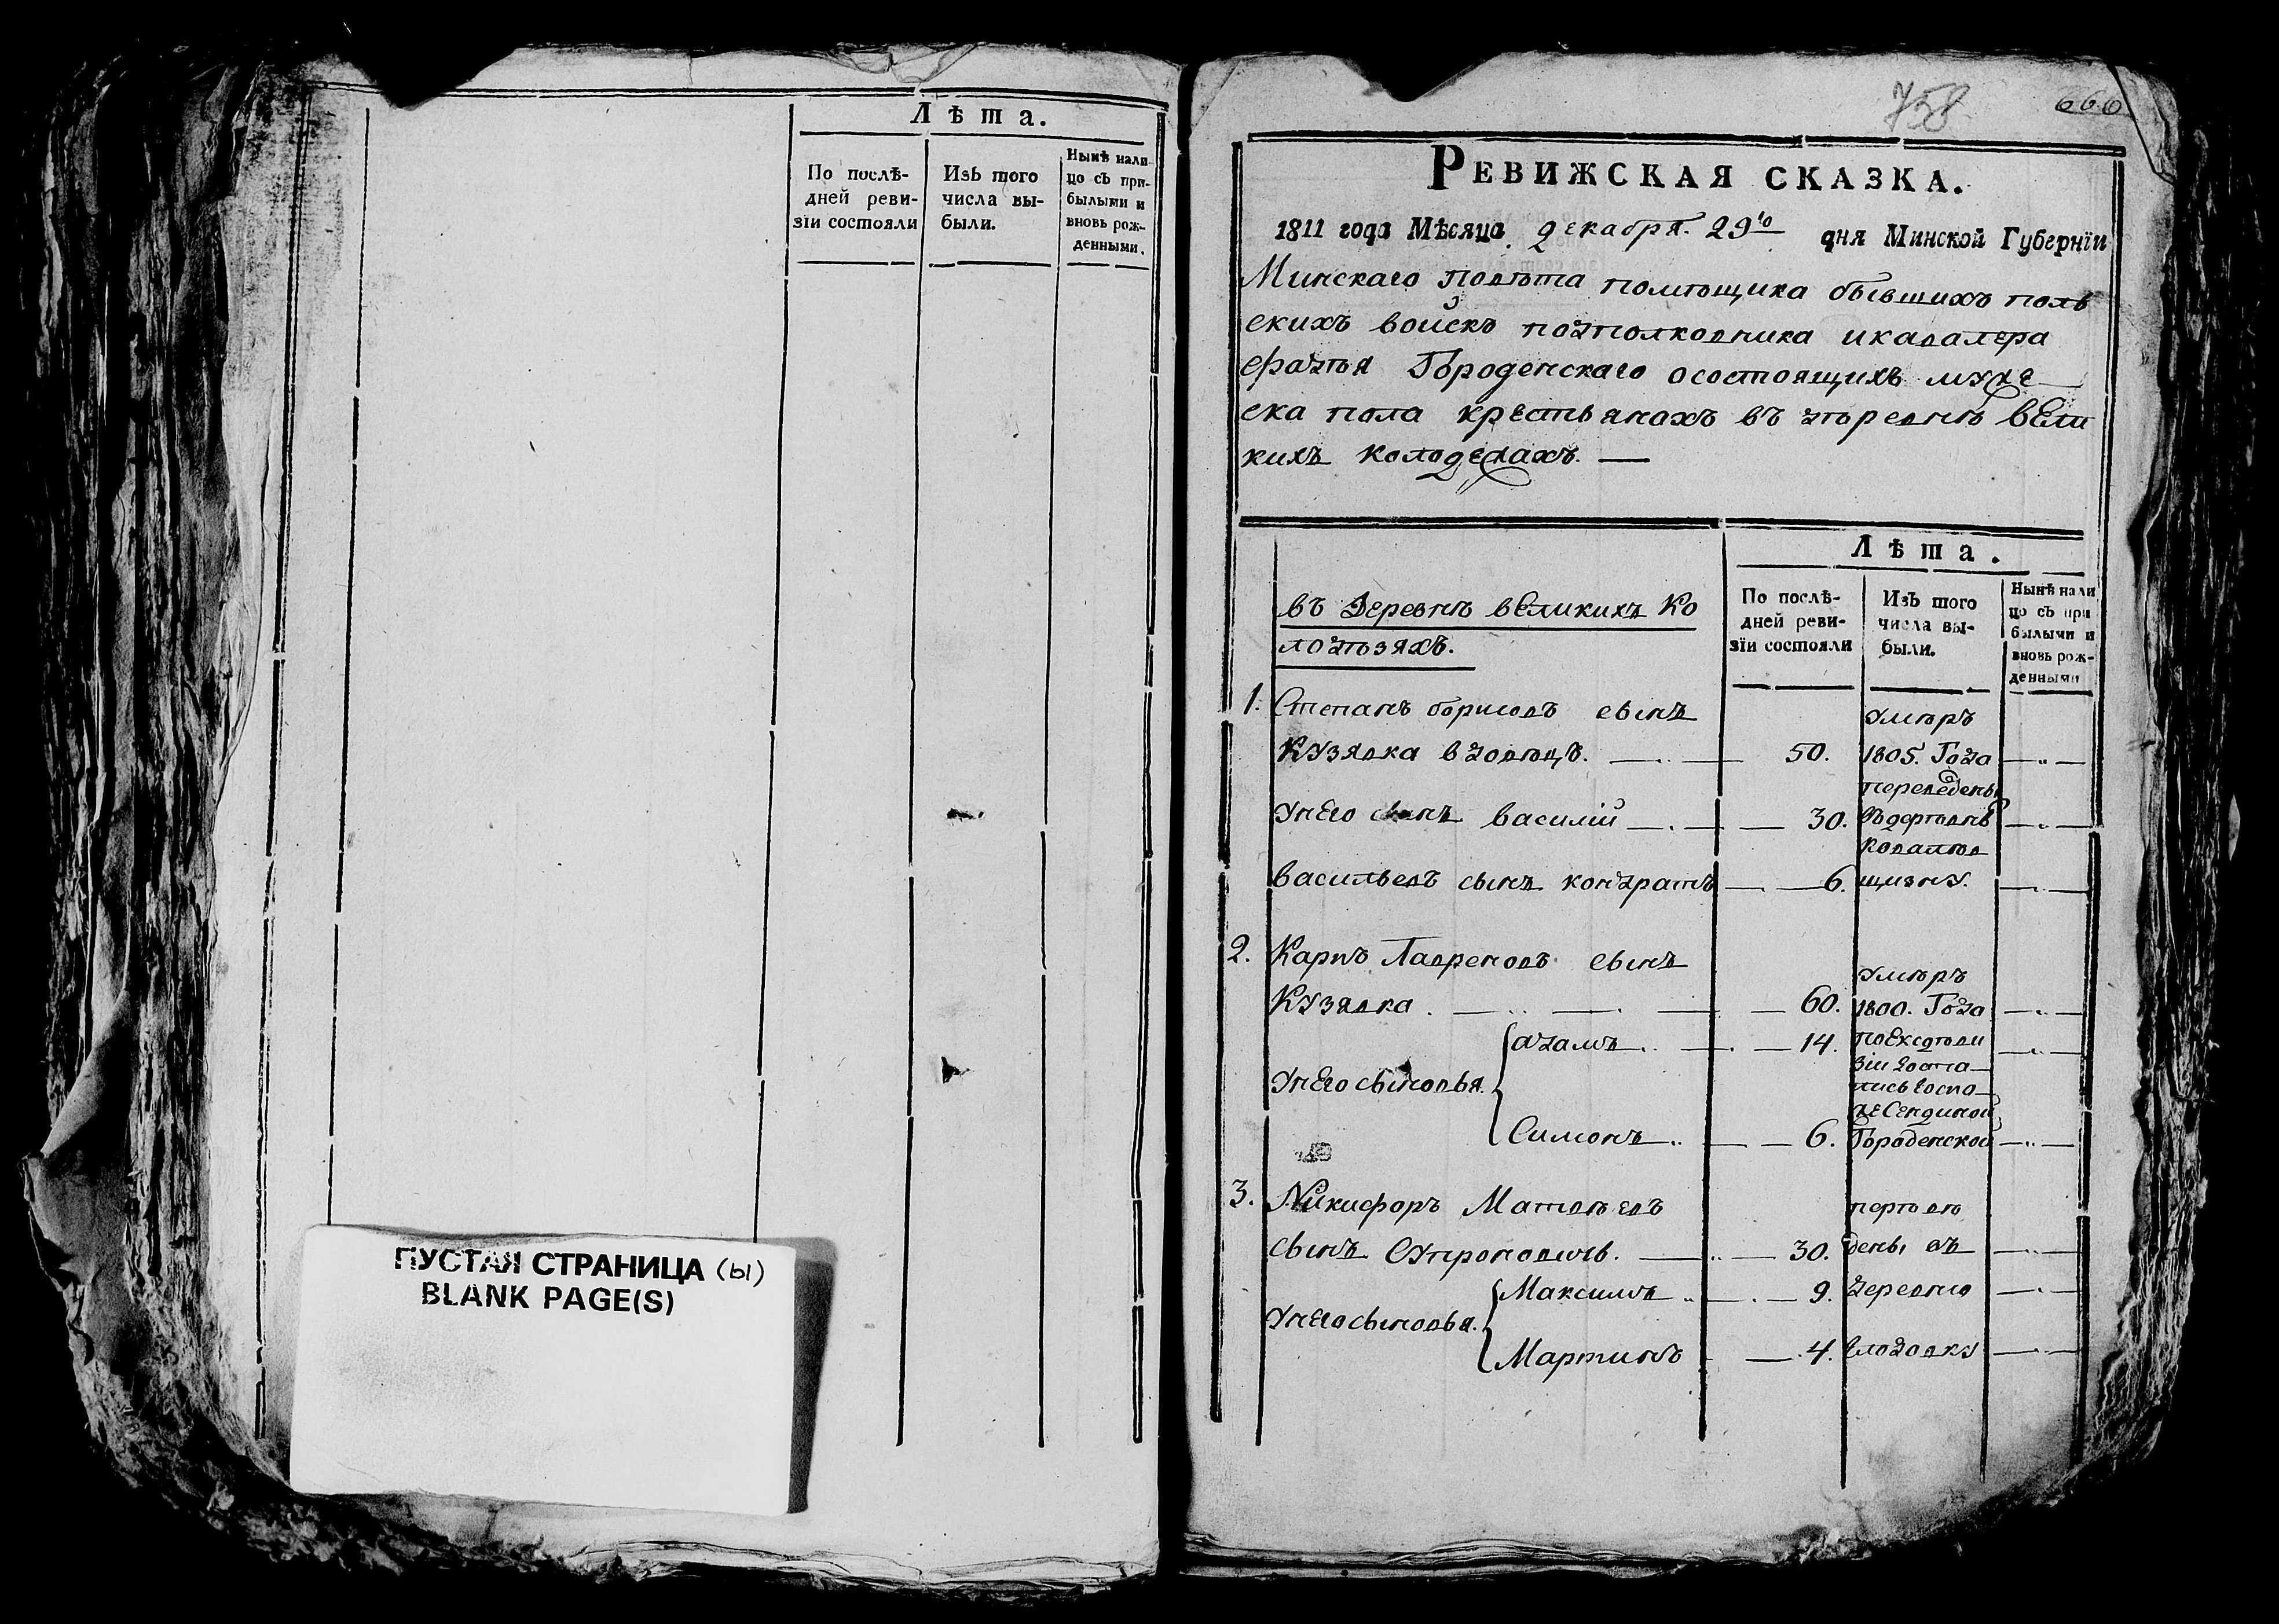 Лѣта.
По послѣ-
дней реви-
зіи состояли
Изъ того
числа вы-
были.
Нынѣ нали-
цо съ при-
былыми и
вновь рож-
денными.
ПУСТАЯ СТРАНИЦА (ы)
BLANK PAGE(S)
758
660
РЕВИЖСКАЯ СКАЗКА.
1811 года Мѣсяца декабря. 29го дня Минской Губерніи
Минскаго Повѣта помѣщика бывшихъ поль
скихъ войскъ подполковника икавалера
Городенскаго осостоящихъ муже
ска пола крестьянахъ въ деревнѣ вели
кихъ колодезахъ. —
въ Деревнѣ великихъ Ко
лодѣзяхъ.
Лѣта.
По послѣ-
дней реви-
зіи состояли
Изъ того
числа вы-
были.
Нынѣ нали
цо съ при
былыми и
вновь рож-
денными
1. Степанъ борисовъ сынъ умѣръ
Кузявка вдовецъ. 50. 1805. Года
переведены
унего сынъ василій 30. въдеревнѣ
васильевъ сынъ кондратъ 6. щизну.
2. Карпъ Лавреновъ сынъ умѣръ
Кузявка 60. 1800. Года
унего сыновья. адамъ 14. поексдиви
зіи доста
лись госпо
жѣ
Симонъ 6. Городенской
3. Никифоръ Матвѣевъ перѣвѣ
сынъ Супроновичъ. 30. дены въ
Максимъ 9. деревню
унего сыновья.
Мартинъ 4. слободку